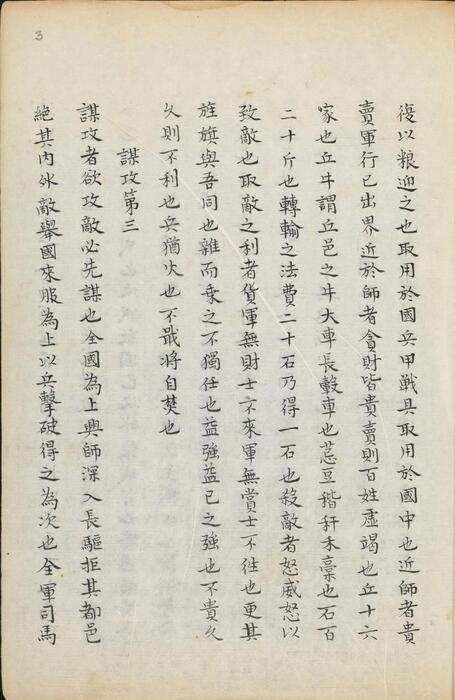 3
復以粮迎之也取用於國兵甲戰具取用於國中也近師者貴
賣軍行已出界近於師者貪財皆貴賣則百姓虛竭也丘十六
家也丘牛謂丘邑之牛大車長轂車也䓤豆稭秆禾稾也石百
二十斤也轉輸之法費二十石乃得一石也殺敵者怒威怒以
致敵也取敵之利者貨軍無財士不來軍無賞士不往也更其
旌旗與吾同也雜而乗之不獨任也益強益已之強也不貴久
久則不利也兵猶火也不戢将自焚也
謀攻第三
謀攻者欲攻敵必先謀也全國為上興師深入長驅拒其都邑
絕其内外敵舉國來服為上以兵擊破得之為次也全軍司馬